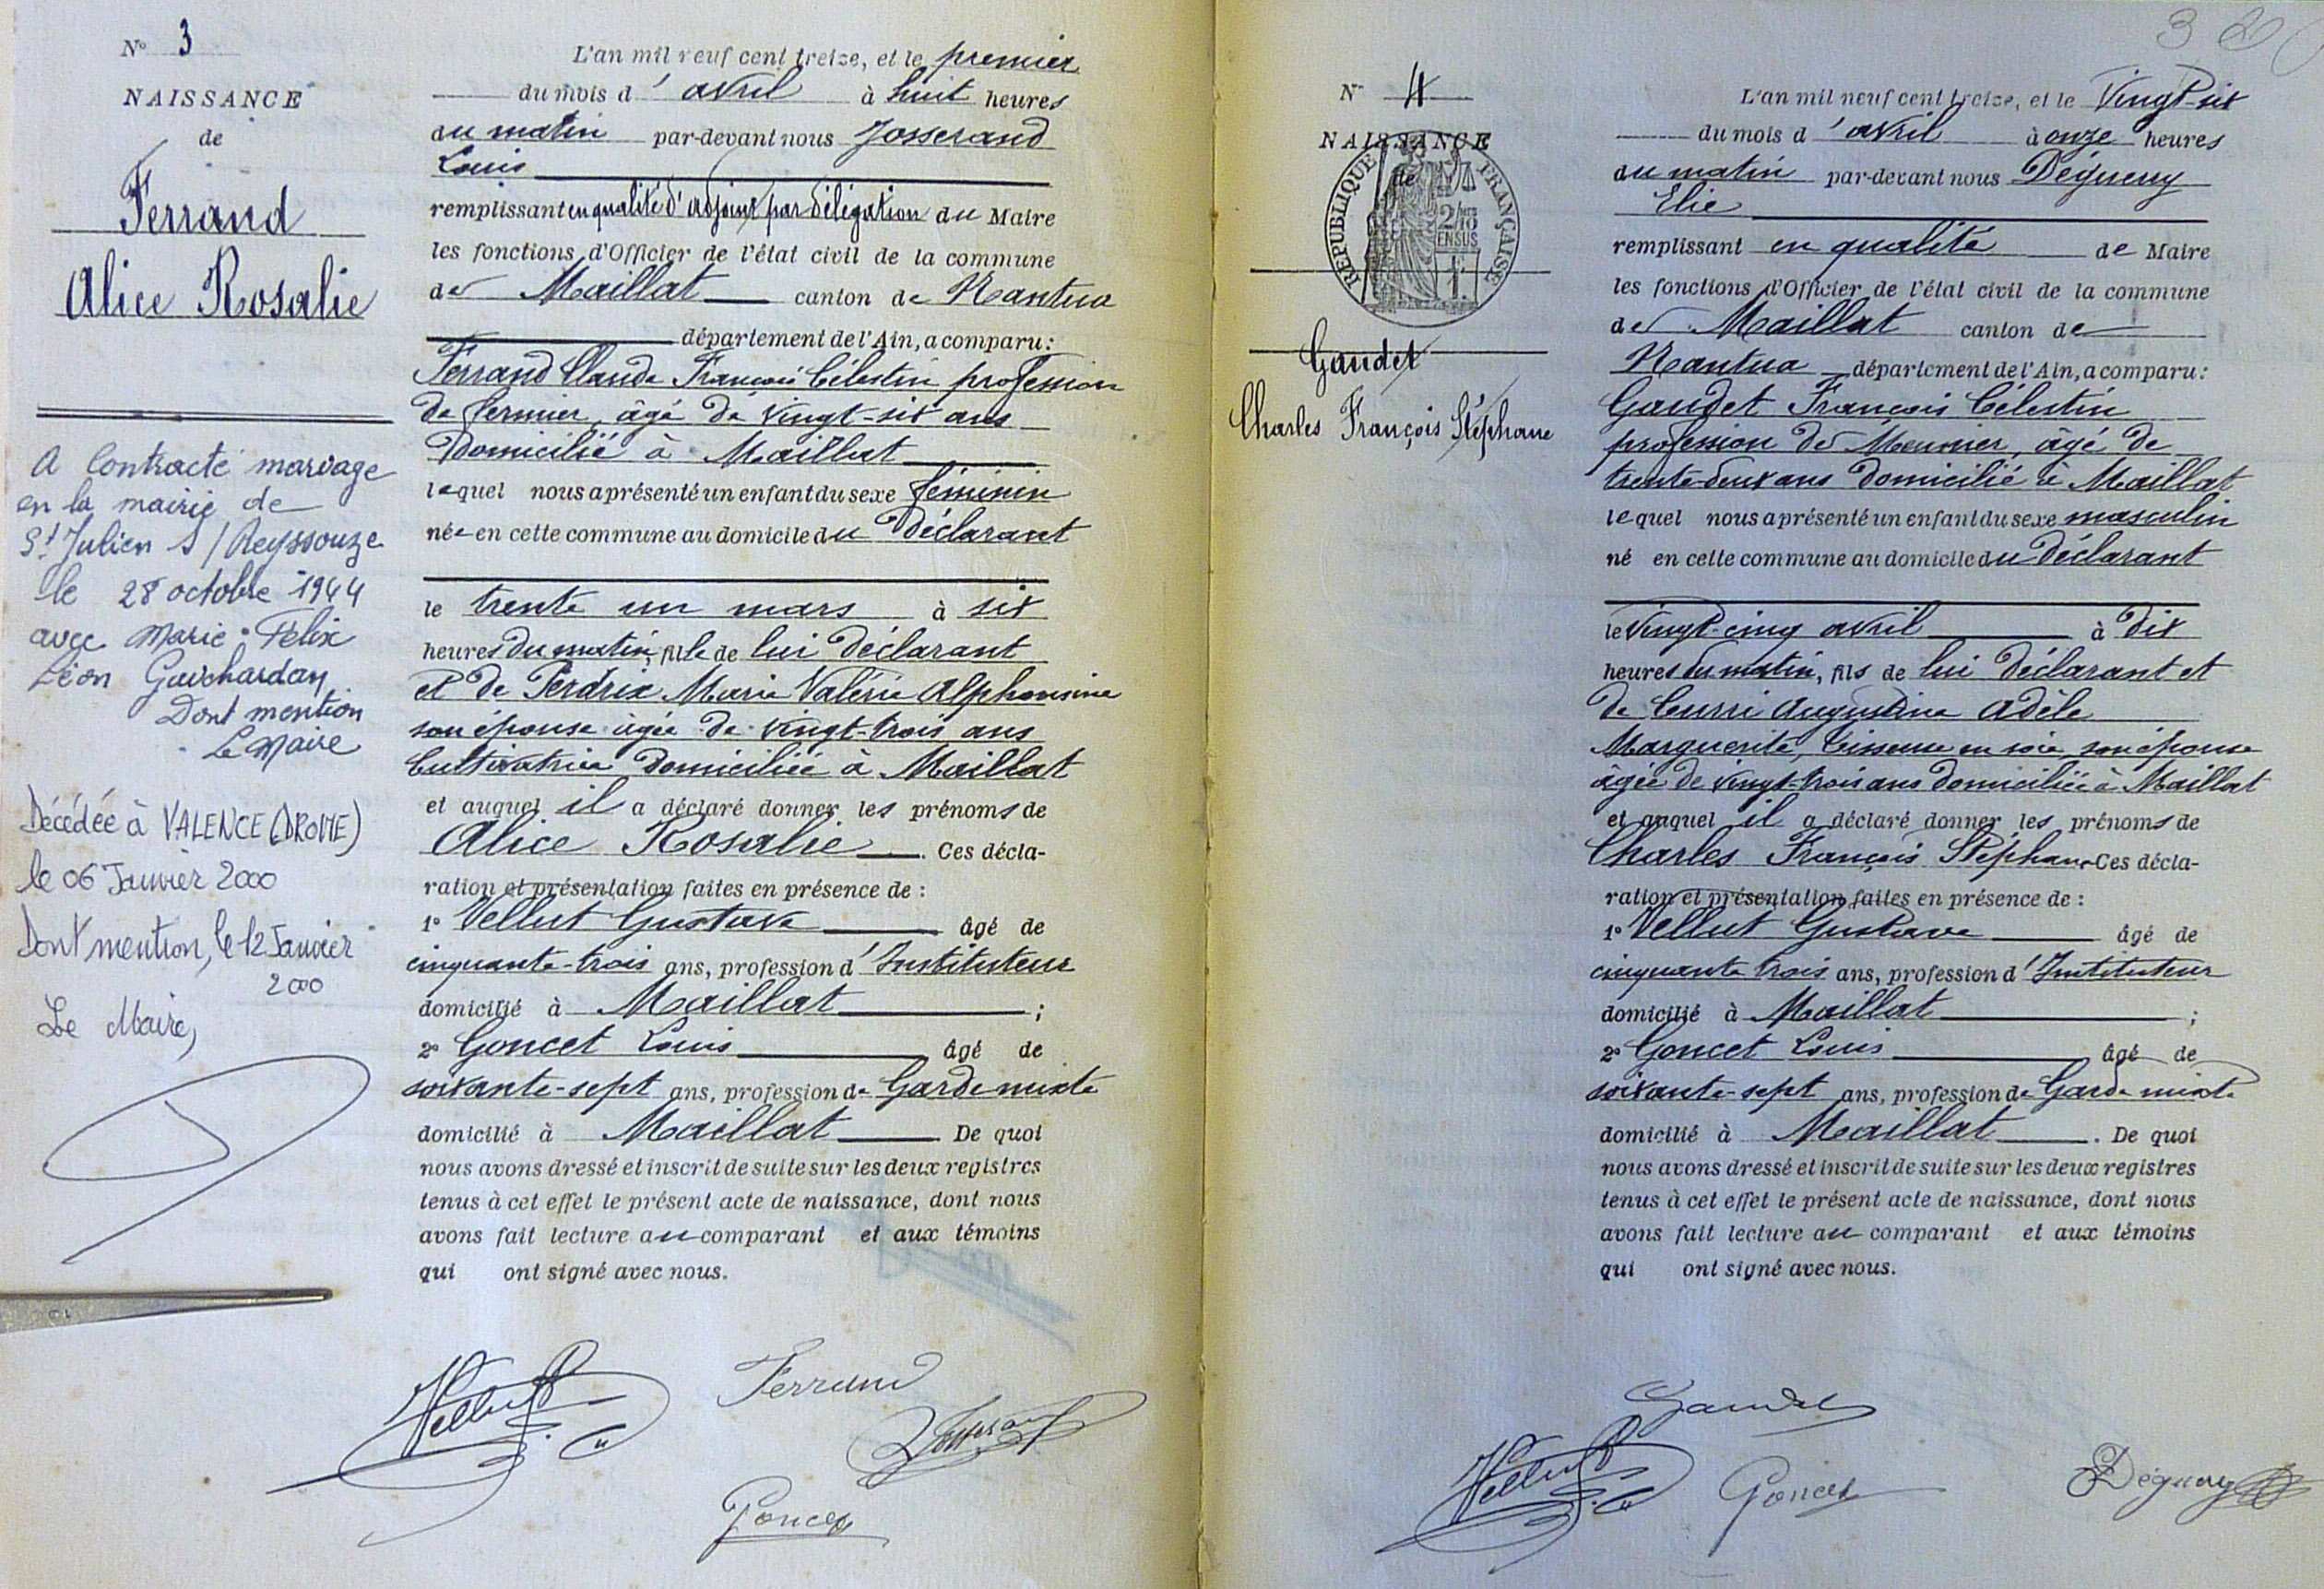 N° 3
NAISSANCE
de
Ferrand
Alice Rosalie
A Contracté mariage
en la mairie de
St Julien s/Reyssouze
le 28 octobre 1944
avec Marie-Félix
Léon Guichardan
Dont mention
Le Maire
Décédée à VALENCE (DROME)
le 06 Janvier 2000
Dont mention, le 12 Janvier
2000
Le Maire,
L'an mil neuf cent treize, et le premier
du mois d'avril à huit heures
du matin par-devant nous Josserand
Louis
remplissant en qualité d'adjoint par délégation du Maire
les fonctions d'Officier de l'état civil de la commune
de Maillat canton de Nantua
département de l'Ain, a comparu :
Ferrand Claude François Célestin profession
de fermier, âgé de vingt-six ans
Domicilié à Maillat
lequel nous a présenté un enfant du sexe féminin
née en cette commune au domicile du Déclarant
le trente un mars à six
heures du matin, fille de lui déclarant
et de Perdrix Marie Valérie Alphonsine
son épouse âgée de vingt-trois ans
Cultivatrice domiciliée à Maillat
et auquel il a déclaré donner les prénoms de
Alice Rosalie. Ces décla-
ration et présentation faites en présence de :
1° Vellut Gustave âgé de
cinquante-trois ans, profession d'Instituteur
domicilié à Maillat ;
2° Goncet Louis âgé de
soixante-sept ans, profession de Garde mixte
domicilié à Maillat. De quoi
nous avons dressé et inscrit de suite sur les deux registres
tenus à cet effet le présent acte de naissance, dont nous
avons fait lecture au comparant et aux témoins
qui ont signé avec nous.
Vellut
Ferrand
Josserand
Goncet
N° 4
NAISSANCE
de
RÉPUBLIQUE FRANÇAISE
2/10
EN SUS
1 F.
Gaudet
Charles François Stéphane
L'an mil neuf cent treize, et le Vingt-six
du mois d'avril à onze heures
du matin par-devant nous Dégueny
Elie
remplissant en qualité de Maire
les fonctions d'Officier de l'état civil de la commune
de Maillat canton de
Nantua département de l'Ain, a comparu :
Gaudet François Célestin
profession de Meunier, âgé de
trente-deux ans domicilié à Maillat
lequel nous a présenté un enfant du sexe masculin
né en cette commune au domicile du Déclarant
le Vingt-cinq avril à dix
heures du matin, fils de lui Déclarant et
de Curri Augustine Adèle
Marguerite, tisseuse en soie, son épouse
âgée de vingt-trois ans domiciliée à Maillat
et auquel il a déclaré donner les prénoms de
Charles François Stéphane. Ces décla-
ration et présentation faites en présence de :
1° Vellut Gustave âgé de
cinquante trois ans, profession d'Instituteur
domicilié à Maillat ;
2° Goncet Louis âgé de
soixante-sept ans, profession de Garde mixte
domicilié à Maillat. De quoi
nous avons dressé et inscrit de suite sur les deux registres
tenus à cet effet le présent acte de naissance, dont nous
avons fait lecture au comparant et aux témoins
qui ont signé avec nous.
Gaudet
Vellut
Goncet
Dégueny